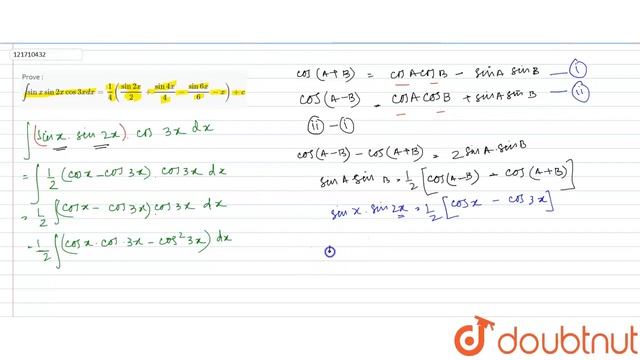 121710432
Prove :
∫ sin x sin 2x cos 3x dx = 1/4 (sin 2x/2 + sin 4x/4 − sin 6x/6 − x) + c
∫ (sin x. sin 2x). cos 3x dx
= ∫ 1/2 (cos x − cos 3x). cos 3x dx
= 1/2 ∫ (cos x − cos 3x) cos 3x dx
= 1/2 ∫ (cos x. cos 3x − cos² 3x) dx
cos (A+B) = cos A cos B − sin A sin B — (i)
cos (A−B) = cos A cos B + sin A sin B — (ii)
(ii) − (i)
cos (A−B) − cos (A+B) = 2 sin A. sin B
sin A sin B = 1/2 [cos (A−B) − cos (A+B)]
sin x. sin 2x = 1/2 [cos x − cos 3x]
doubtnut